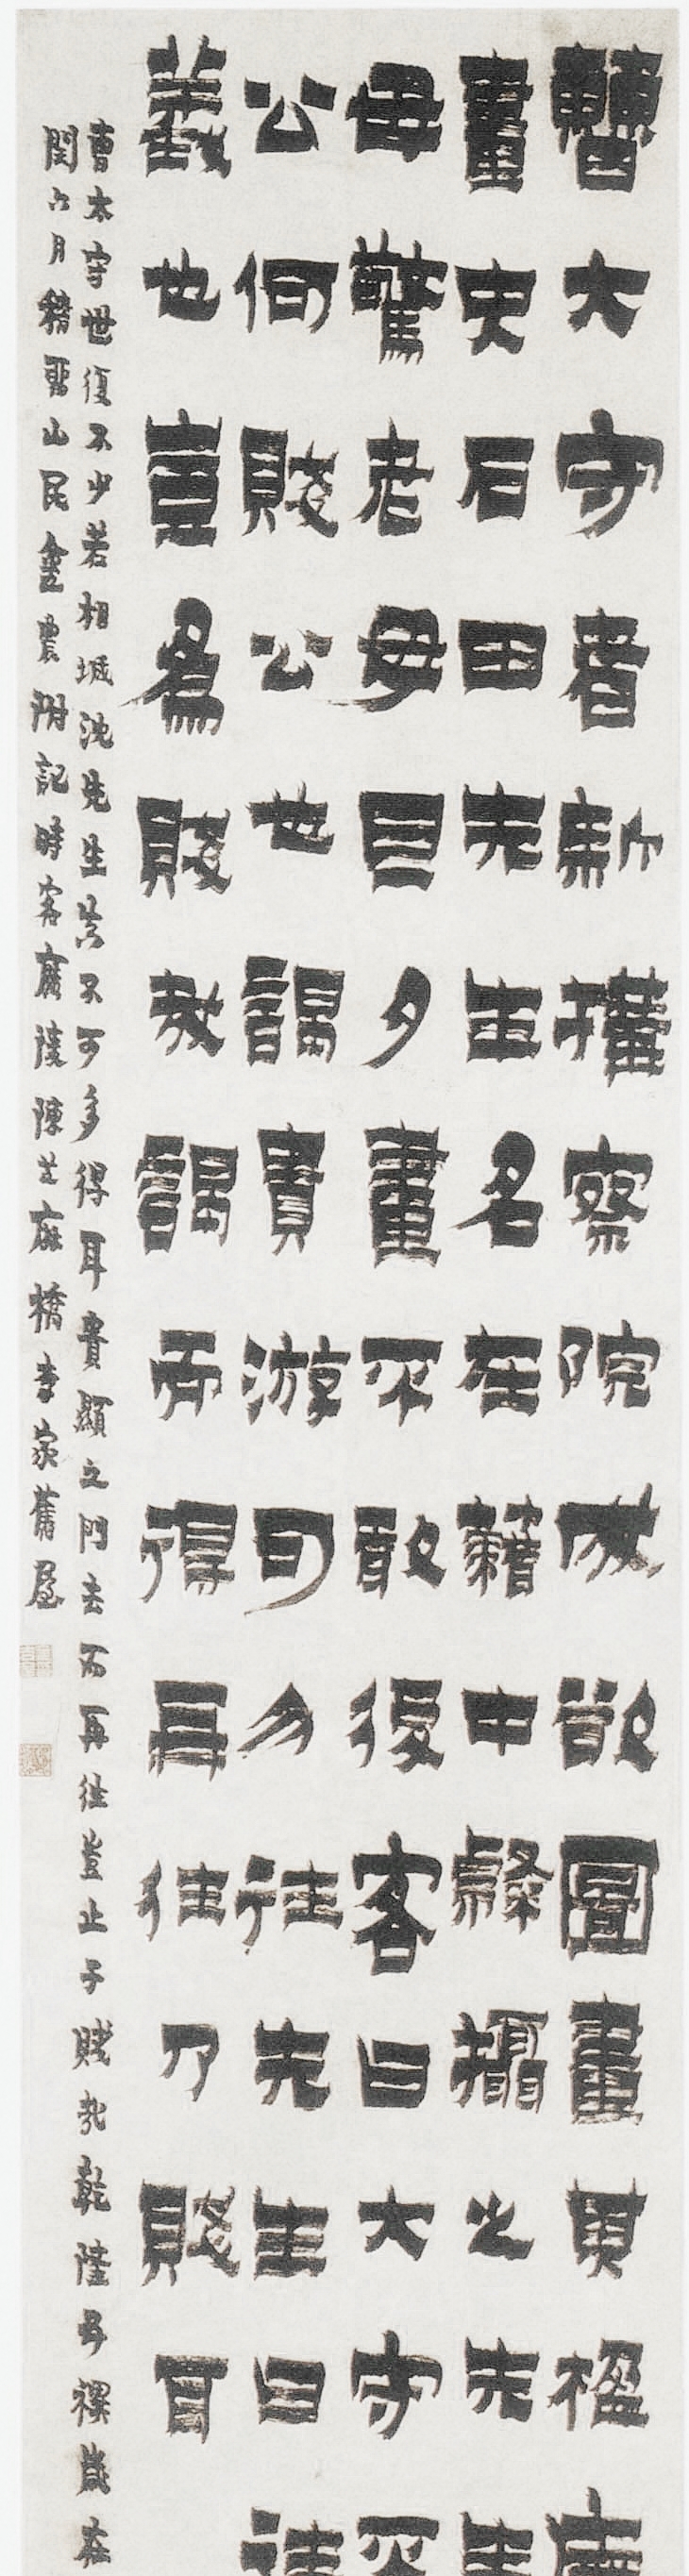 曹大守者新擢察院成欲圖畫其楹廡
畫史石田先生名在籍中隸攝之先生
毋驚老母旦夕畫不敢後客曰大守不
公何賤公也謁貴游可勿往先生曰往
義也豈為賤哉謁而得再往乃賤耳
曹太守世復不少若相城沈先生實不可多得耳貴顯之門去而再往豈止于賤哉乾隆禩歲在
閏六月稽留山民金農附記時客廣陵陳芝麻橋李家舊屋